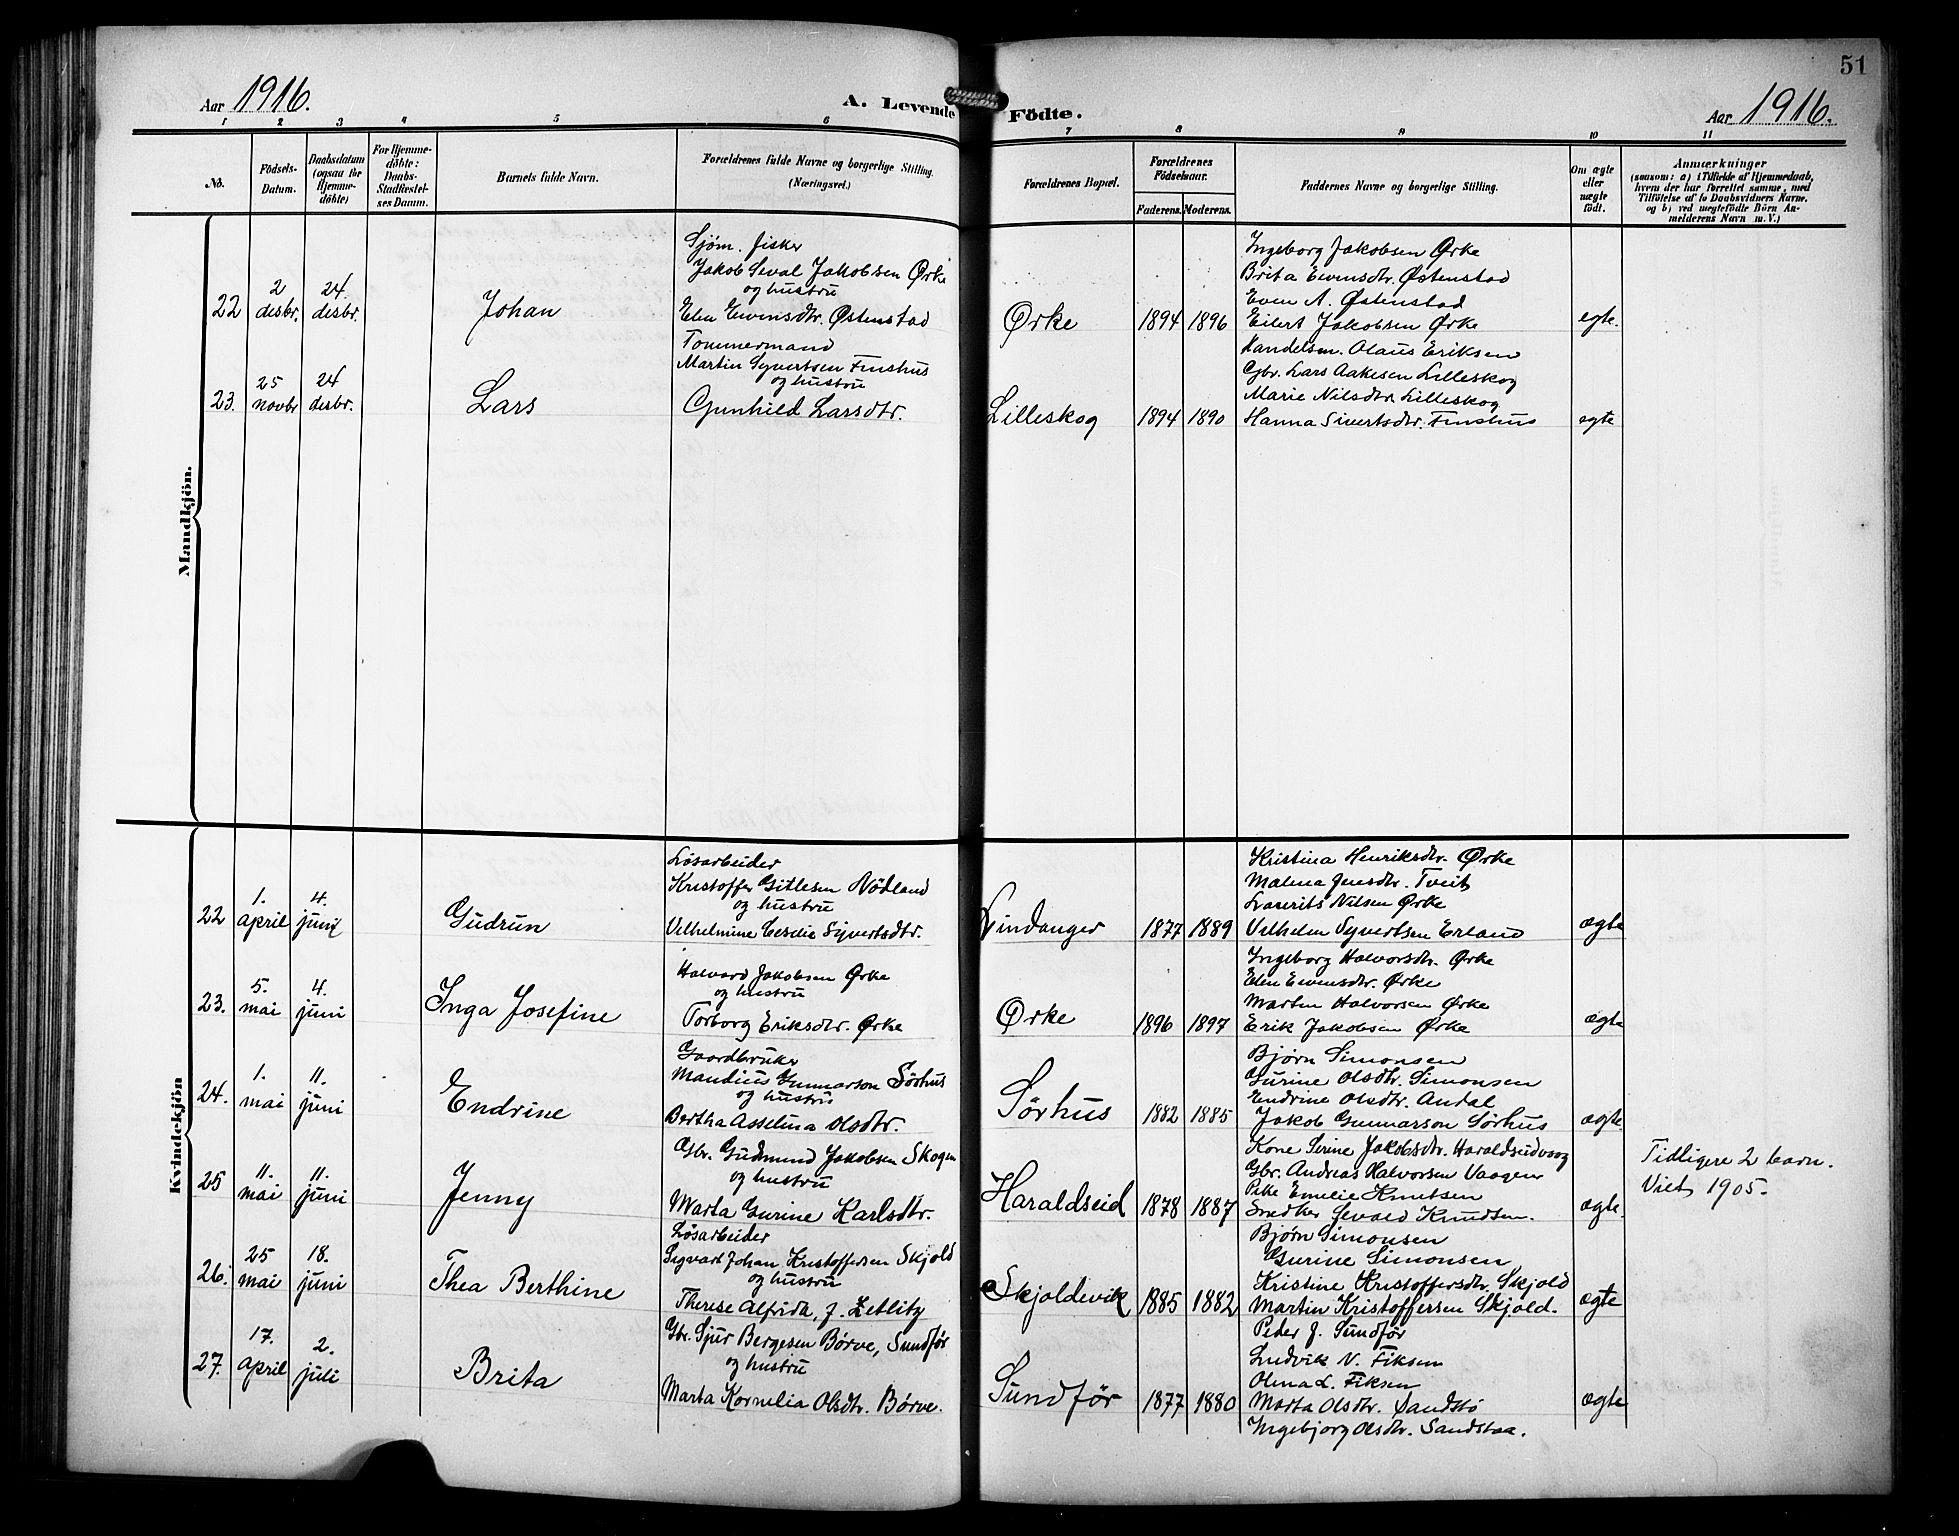 51
Aar 1916.
A. Levende Födte.
Aar 1916.
1 2 3 4 5 6 7 8 9 10 11
No.
Födsels-
Datum.
Daabsdatum
(ogsaa for
Hjemme-
döbte)
For Hjemme-
döbte:
Daabs-
Stadfæstel-
ses Datum.
Barnets fulde Navn.
Forældrenes fulde Navne og borgerlige Stilling.
(Næringsvei.)
Forældrenes Bopæl.
Forældrenes
Födselsaar.
Faderens. Moderens.
Faddernes Navne og borgerlige Stilling.
Om ægte
eller
uægte
födt.
Anmærkninger
(saasom: a) i Tilfælde af Hjemmedaab,
hvem der har forrettet samme, med
Tilföielse af to Daabsvidners Navne,
og b) ved uægtefödte Börn An-
melderens Navn m. V.)
Mandkjön.
22
2
desbr.
24.
desbr.
Johan
Sjøm. fisker
Jakob Seval Jakobsen Ørke
og hustru
Elen Evensdtr. Østenstad
Ørke
1894 1896
Ingeborg Jakobsen Ørke
Brita Evensdtr. Østenstad
Even A. Østenstad
Eilert Jakobsen Ørke
egte.
23.
25
novbr
24
desbr.
Lars
Tommermand
Martin Syvertsen Finshus
og hustru
Gunhild Larsdtr.
Lilleskog
1894 1890
Handelsm. Olaus Eriksen
Gbr. Lars Aakesen Lilleskog
Marie Nilsdtr. Lilleskog
Hanna Sivertsdtr. Finshus
egte
Kvindekjön
22
1.
april
4.
juni
Gudrun
Løsarbeider
Kristoffer Gitlesen Nödland
og hustru
Vilhelmine Cecelie Syvertsdtr.
Lindanger
1877 1889
Kristina Henriksdtr. Ørke
Malena Jensdtr. Tveit
Laurits Nilsen Ørke
Vilhelm Syvertsen Erland
ægte
23.
5.
mai
4.
juni
Inga Josefine
Halvard Jakobsen Ørke
og hustru
Torborg Eriksdtr. Ørke
Ørke
1896 1897
Ingeborg Halvorsdtr. Ørke
Elen Evensdtr. Ørke
Martin Halvorsen Ørke
Erik Jakobsen Ørke
ægte
24.
1.
mai
11.
juni
Endrine
Gaardbruker
Mandius Gunnarson Sørhus
og hustru
Bertha Asselina Olsdtr.
Sørhus
1882 1885
Bjørn Simonsen
Gurine Olsdtr. Simonsen
Endrine Olsdtr. Andal
Jakob Gunnarson Sørhus
ægte.
25
11.
mai
11.
juni
Jenny
Gbr. Gudmund Jakobsen Skogen
og hustru
Marta Gurine Karlsdtr.
Haraldseid
1878 1887
Kone Serine Jakobsdtr. Haraldseidvaag
Gbr. Andreas Halvorsen Vaagen
Pike Emelie Knutsen
Snedker Sevald Knudsen.
ægte.
Tidligere 2 barn.
Viet 1905.
26.
25
mai
18.
juni
Thea Berthine
Løsarbeider
Sigvart Johan Kristoffersen Skjold
og hustru
Therese Alfrida, f. Zetlitz
Skjoldevik
1885 1882
Bjørn Simonsen
Gurine Simonsen
Kristine Kristoffersdtr. Skjold
Martin Kristoffersen Skjold.
ægte
27.
17.
april
2.
juli
Brita
Gbr. Sjur Bergesen Børve, Sundfør
og hustru
Marta Kornelia Olsdtr. Børve.
Sundfør
1877 1880
Peder J. Sundfør
Ludvik N. Fiksen
Olina L. Fiksen
Marta Olsdtr. Sandstø
Ingebjorg Olsdtr. Sandstaa.
ægte